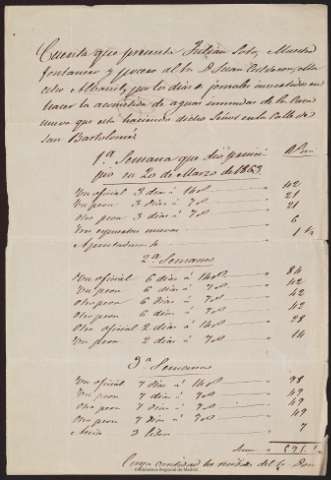 Cuenta que presenta Julian Soto, Maestro
fontanero y pocero al Sr. Dn. Juan
por los dias o jornales invertidos en
hacer la acometida de aguas inmundas de la Casa
nueva que está haciendo dicho Señor en la Calle de
San Bartolomé
1ª Semana que dió princi
pio en 20 de Marzo de 1863.
Un oficial 3 dias á 14 rs 42
Un peon 3 dias á 7 rs 21
Otro peon 3 dias á 7 rs 21
Dos espuertas nuevas 6
2ª Semana
Un oficial 6 dias á 14 rs 84
Un peon 6 dias á 7 rs 42
Otro peon 6 dias á 7 rs 42
Otro peon 6 dias á 7 rs 42
Otro oficial 2 dias á 14 rs 28
Un peon 2 dias á 7 rs 14
3ª Semana
Un oficial 7 dias á 14 rs 98
Un peon 7 dias á 7 rs 49
Otro peon 7 dias á 7 rs 49
Otro peon 7 dias á 7 rs 49
7
Suma
Cuya cantidad he recibido del Sr. Dn
Biblioteca Regional de Madrid